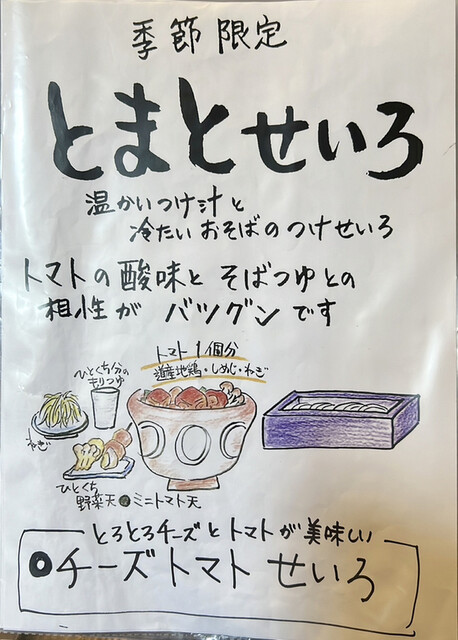 季節限定
とまとせいろ
温かいつけ汁と
冷たいおそばのつけせいろ
トマトの酸味とそばつゆとの
相性がバツグンです
トマト1個分
道産地鶏・しめじ・ねぎ
ひとくち分の
もりつゆ
ねぎ
ひとくち
野菜天 ミニトマト天
とろとろチーズとトマトが美味しい
チーズトマトせいろ